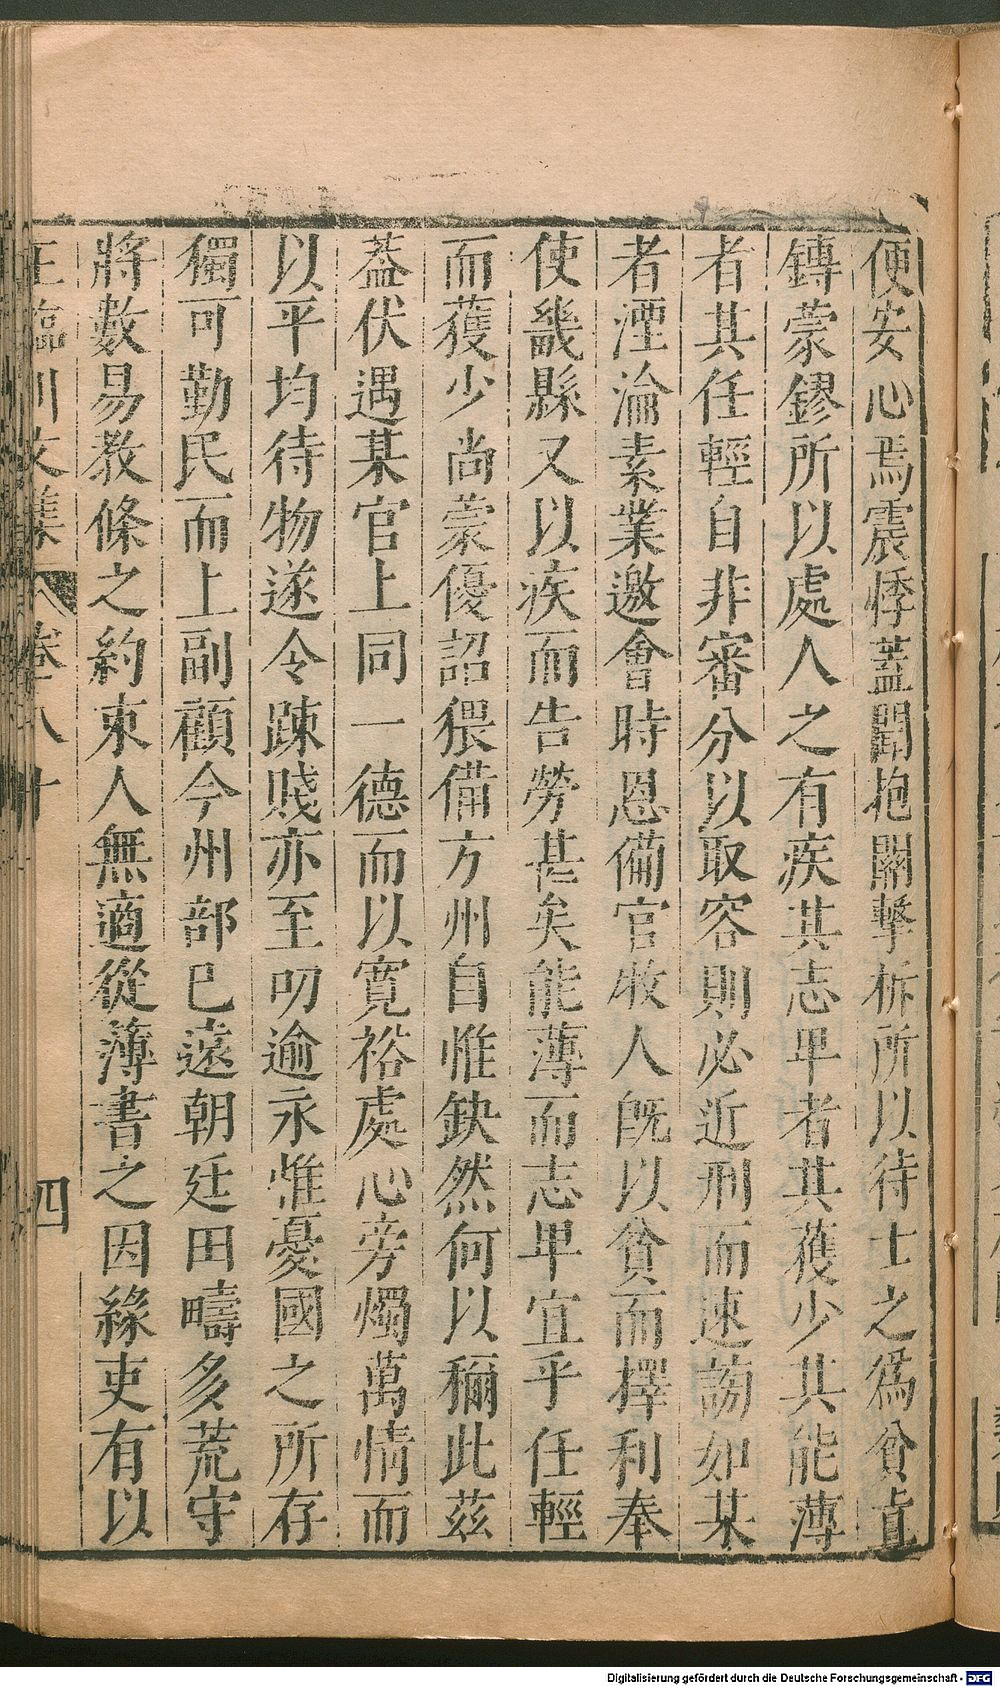 便安心焉震悸蓋聞抱關擊柝所以待士之為貧直
鎛蒙鏐所以處人之有疾其志卑者其獲少其能薄
者其任輕自非審分以取容則必近刑而速謗如某
者湮淪素業邀會時恩備官牧人旣以貧而擇利奉
使畿縣又以疾而告勞甚矣能薄而志卑宜乎任輕
而獲少尚蒙優詔猥備方州自惟缺然何以稱此茲
蓋伏遇某官上同一德而以寬裕處心旁燭萬情而
以平均待物遂令踈賤亦至叨逾永惟憂國之所存
獨可勤民而上副顧今州部已遠朝廷田疇多荒守
將數易敎條之約束人無適從薄書之因緣吏有以
王臨川文集 卷八十 四
Digitalisierung gefördert durch die Deutsche Forschungsgemeinschaft - DFG